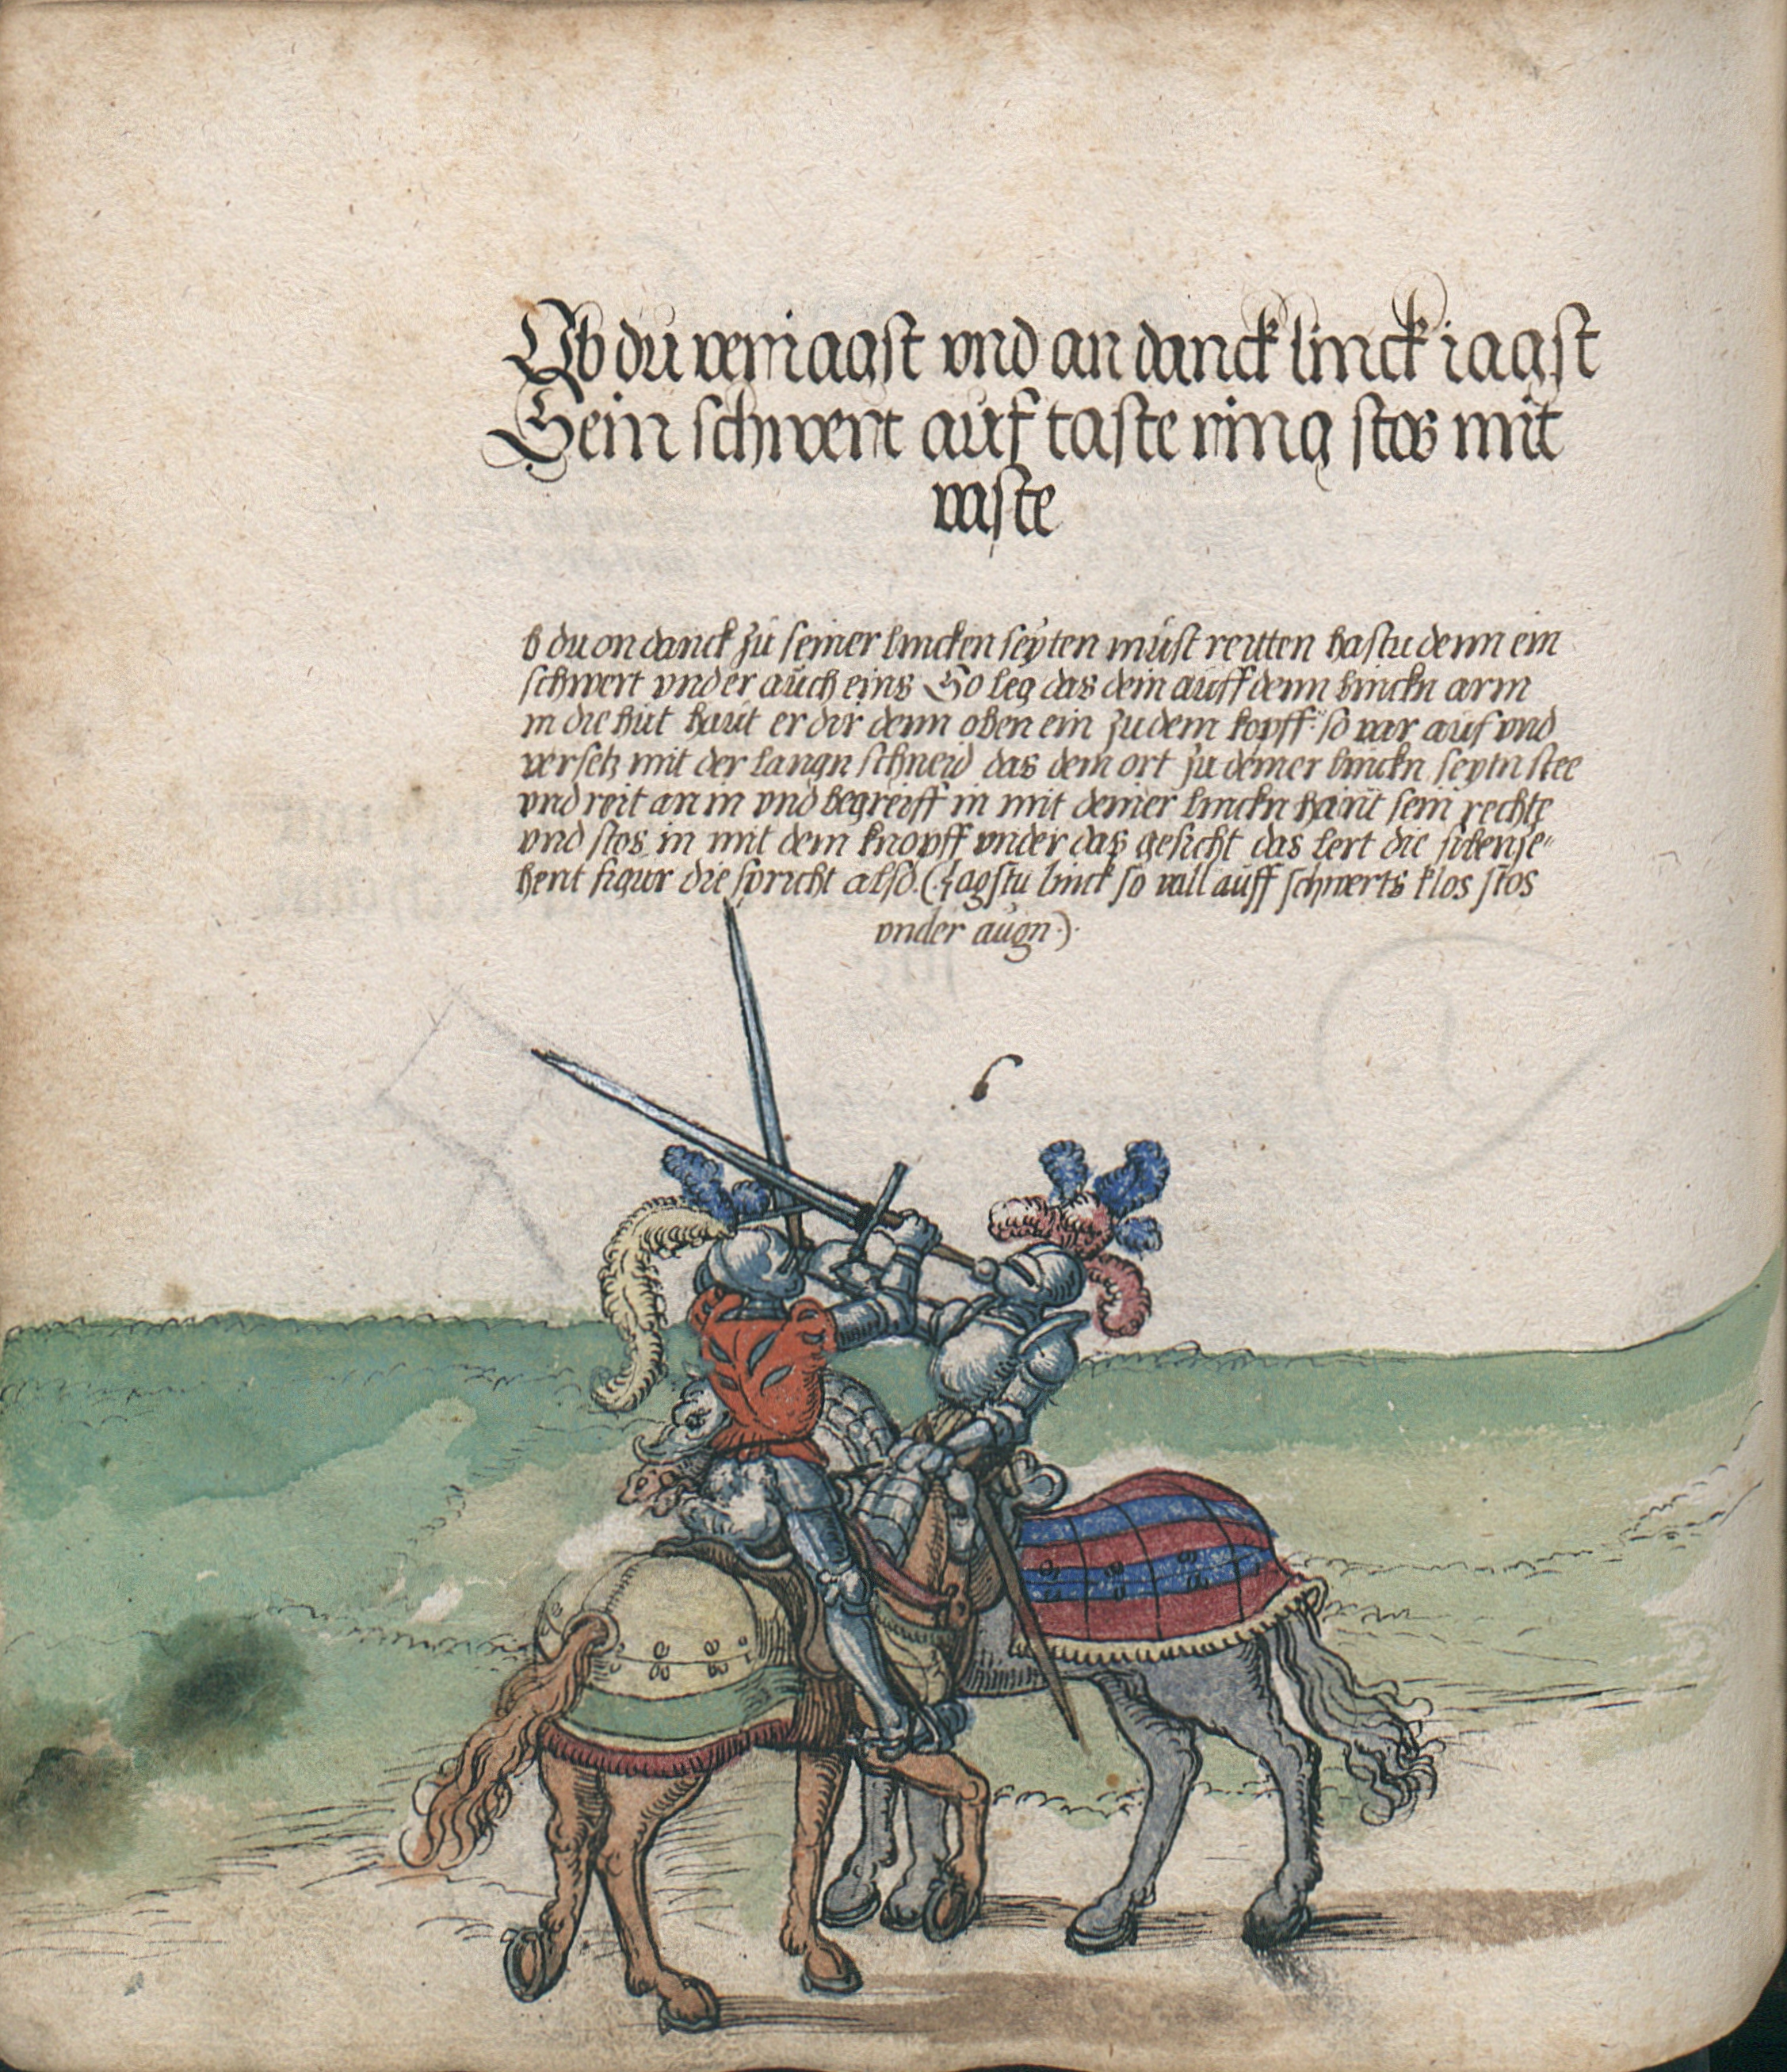 Ob du veriagst vnd an danck linck iagst
Sein schwert auf taste ring stos mit
vaste
b du on danck zu seiner lincken seyten must reitten hastu denn ein
schwert vnd er auch eins So leg das dein auff denn linckn arm
in die hut haut er dir denn oben ein zu dem kopff so var auf vnd
versetz mit der langn schneid das dem ort zu deiner linckn seytn stee
vnd reit an in vnd begreiff in mit deiner linckn hant sein rechte
vnd stos in mit dem knopff vnder das gesicht das lert die sibenze"
hent figur die spricht also. (Jagstu linck so vall auff schwerts klos stos
vnder augn).